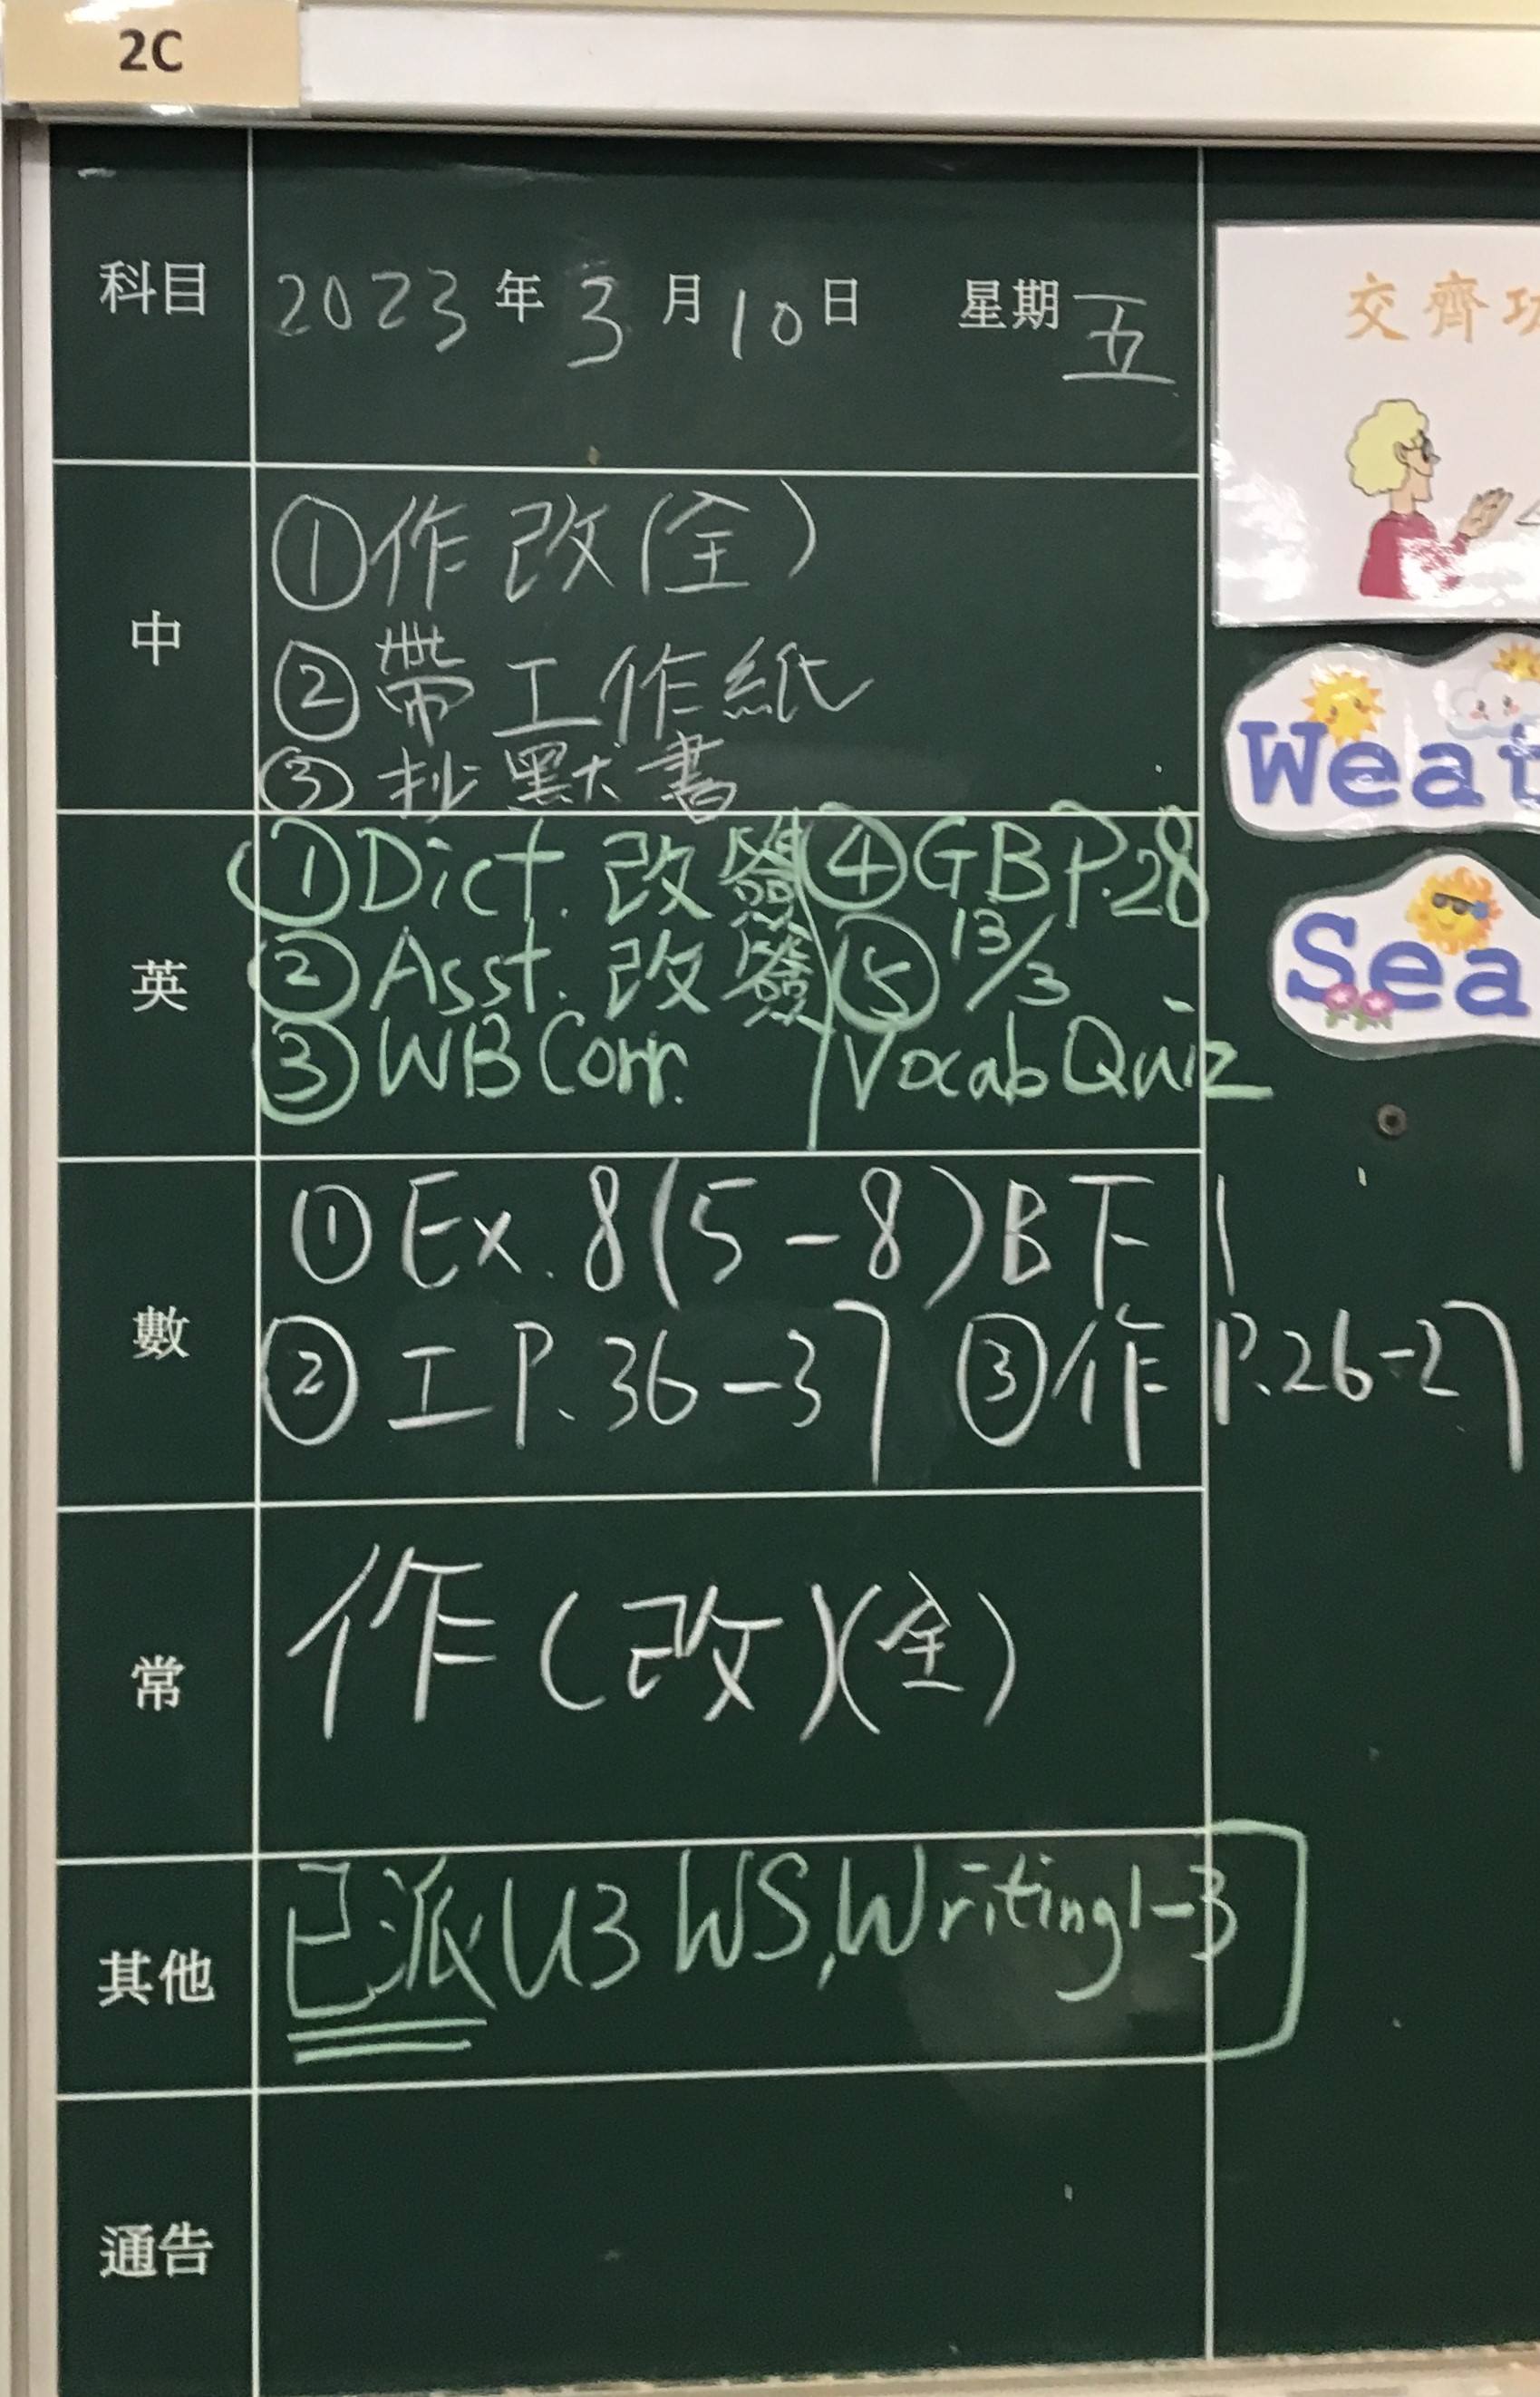 2C
科目 2023年3月10日 星期五
交齊
中
①作改(全)
②帶工作紙
③抄默書
Weat
Sea
英
①Dict. 改簽 ④GB P.28
②Asst. 改簽 ⑤ 13/3
③WB Corr. Vocab Quiz
數
①Ex. 8(5-8)B下
②工P.36-37 ③作P.26-27
常
作(改)(全)
其他
已派U3 WS, Writing1-3
通告